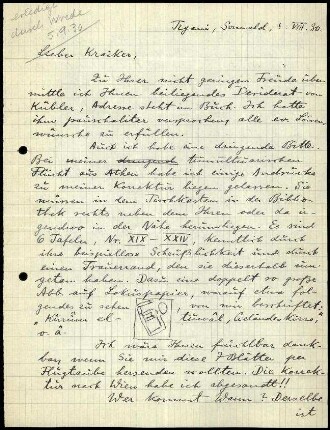 erledigt
durch Wrede
5.9.30
Tigani, Sonnabd, VIII. 30
Lieber Kraiker,
Zu Ihrer nicht geringen Freude über-
mittle ich Ihnen beiliegendes Desiderat von
Kübler, Adresse steht im Buch. Ich hatte
ihm pauschaliter versprochen alle
wünsche zu erfüllen.
Auch ich habe eine dringende Bitte.
Bei meiner tumultuarischen
Flucht aus Athen habe ich einige Andrucke
zu meiner Korrektur liegen gelassen. Sie
müssen in dem Tischkasten in der Biblio-
thek rechts neben dem Ihren oder da ir-
gendwo in der Nähe herumliegen. Es sind
6 Tafeln, Nr. XIX – XXIV, kenntlich durch
ihre beispiellose Scheußlichkeit und durch
einen Trauerrand, den sie dieserhalb um-
getan haben. Dazu eine doppelt so große
Abb. auf, worauf etwa fol-
gendes zu sehen, von mir beschriftet,
o. ä.
Ich wäre Ihnen furchtbar dank-
bar, wenn Sie mir diese 7 Blätter per
hersenden wollten. Die Korrek-
tur nach Wien habe ich abgesandt!!
Wer kommt wann? Derselbe
ist